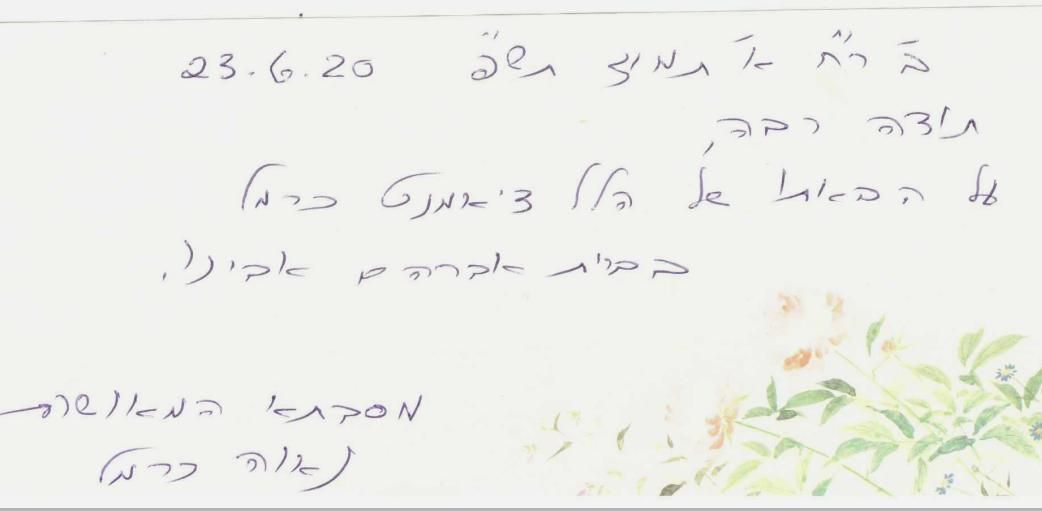 ב' ר"ח א' תמוז תש"פ 23.6.20
תודה רבה,
על הבאתו של הלל דיאמנט כרמל
בברית אברהם אבינו.
מסבתא המאושרת
נאוה כרמל